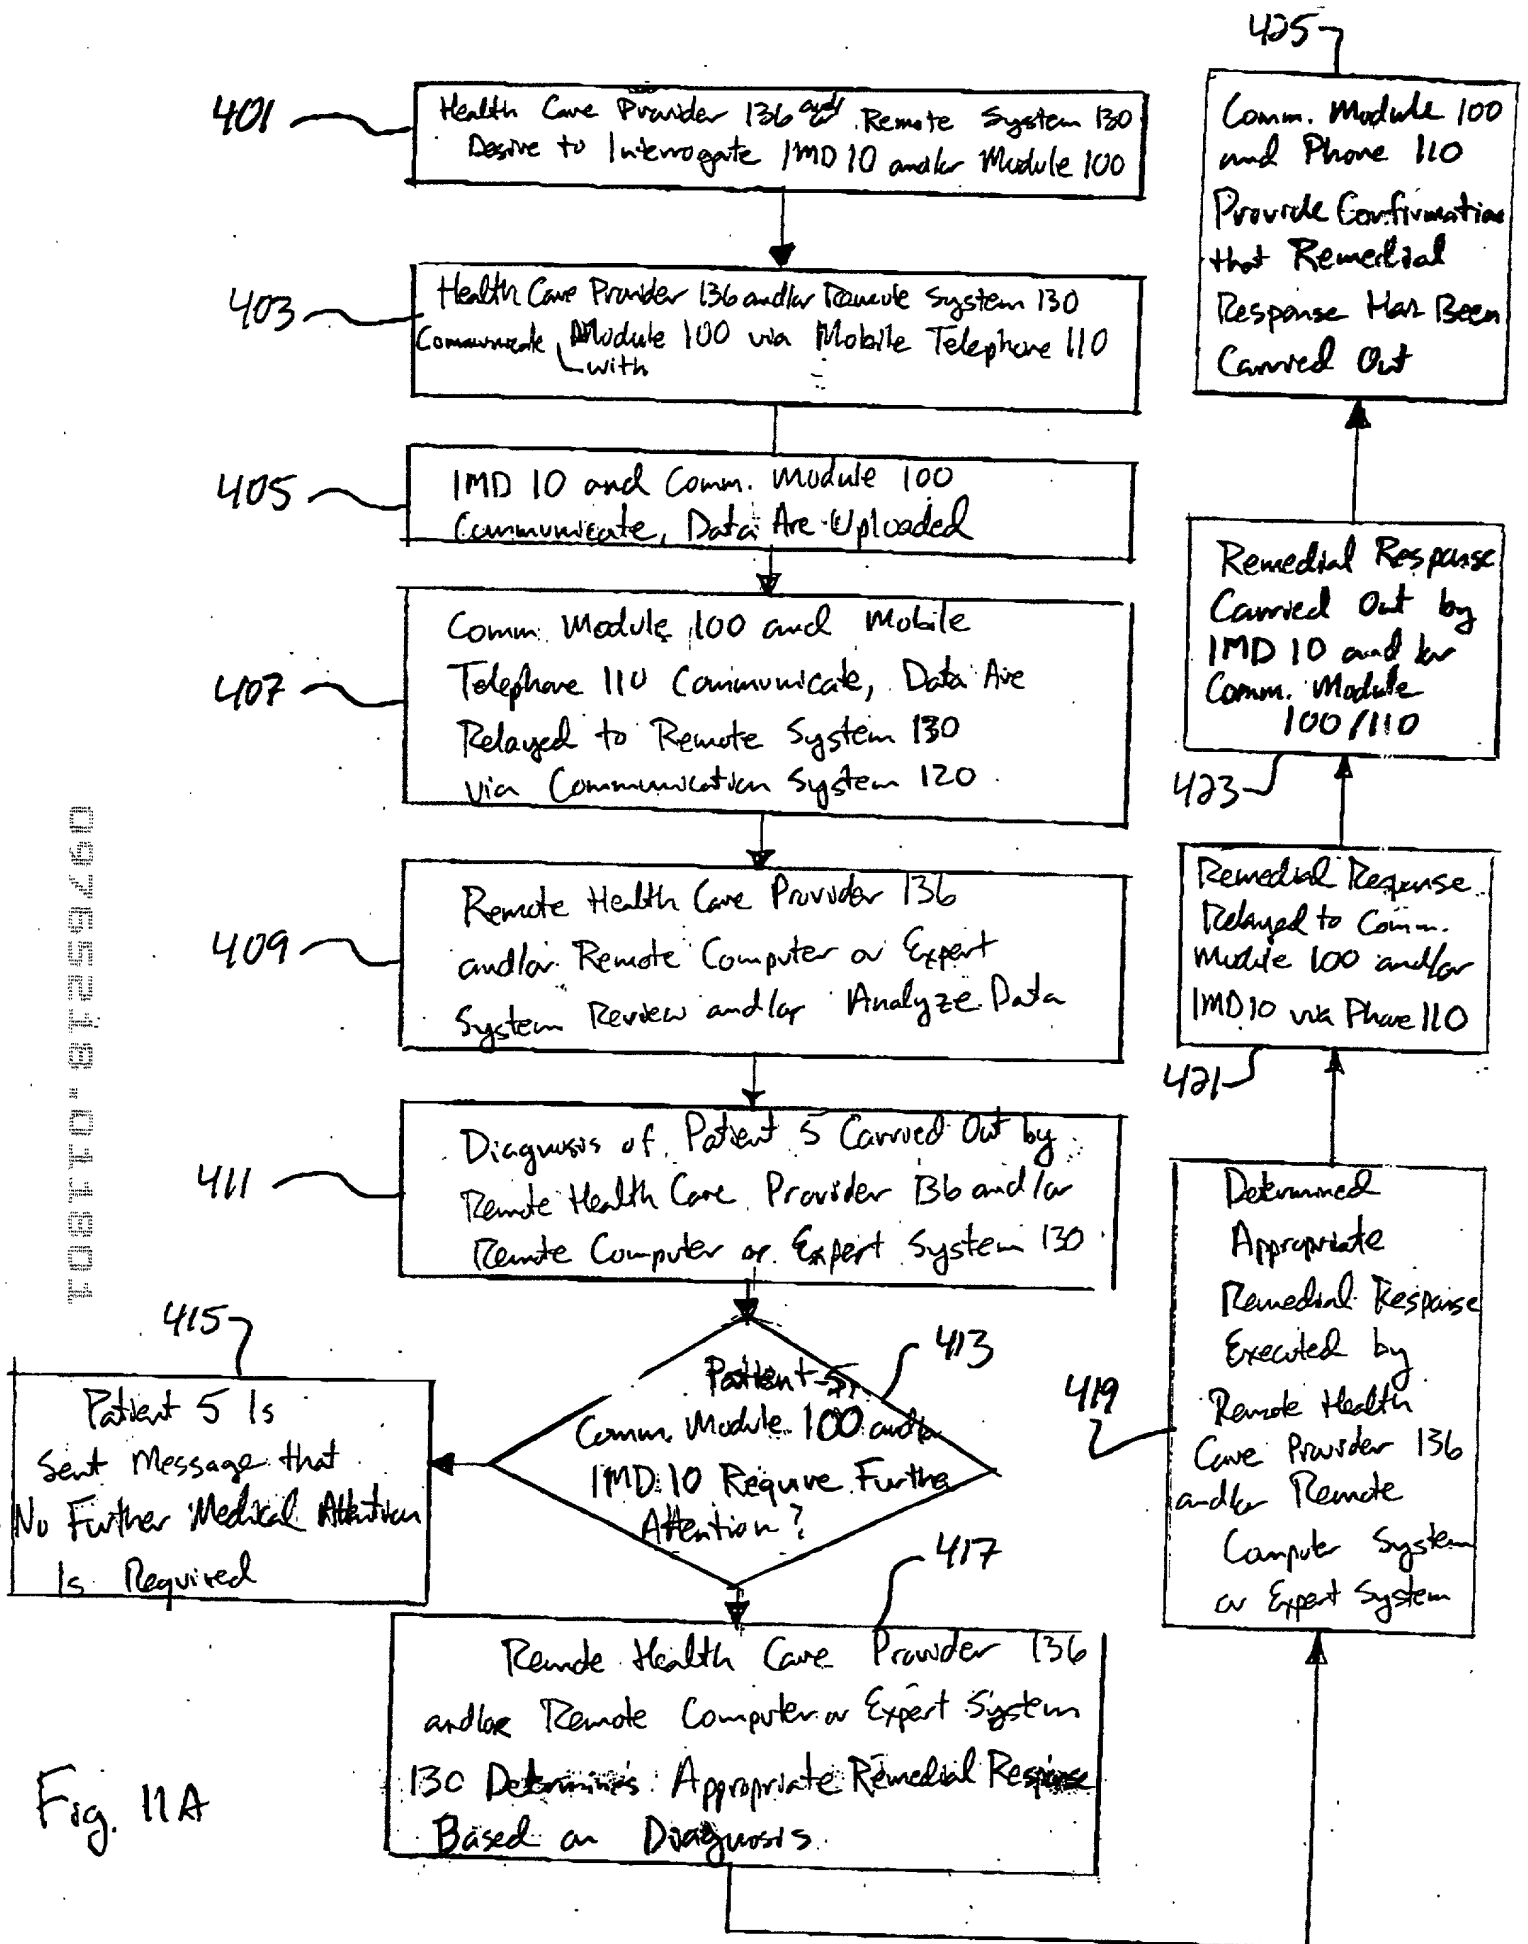 401
Health Care Provider 136 and/or Remote System 130
Desire to Interrogate IMD 10 and/or Module 100
403
Health Care Provider 136 and/or Remote System 130
Communicate with Module 100 via Mobile Telephone 110
405
IMD 10 and Comm. Module 100
Communicate, Data Are Uploaded
407
Comm. Module 100 and Mobile
Telephone 110 Communicate, Data Are
Relayed to Remote System 130
via Communication System 120
409
Remote Health Care Provider 136
and/or Remote Computer or Expert
System Review and/or Analyze Data
411
Diagnosis of Patient 5 Carried Out by
Remote Health Care Provider 136 and/or
Remote Computer or Expert System 130
413
Patient 5,
Comm. Module 100 and/or
IMD 10 Require Further
Attention?
415
Patient 5 Is
Sent Message that
No Further Medical Attention
Is Required
417
Remote Health Care Provider 136
and/or Remote Computer or Expert System
130 Determines Appropriate Remedial Response
Based on Diagnosis
419
Determined
Appropriate
Remedial Response
Executed by
Remote Health
Care Provider 136
and/or Remote
Computer System
or Expert System
421
Remedial Response
Relayed to Comm.
Module 100 and/or
IMD 10 via Phone 110
423
Remedial Response
Carried Out by
IMD 10 and/or
Comm. Module
100/110
425
Comm. Module 100
and Phone 110
Provide Confirmation
that Remedial
Response Has Been
Carried Out
Fig. 11A